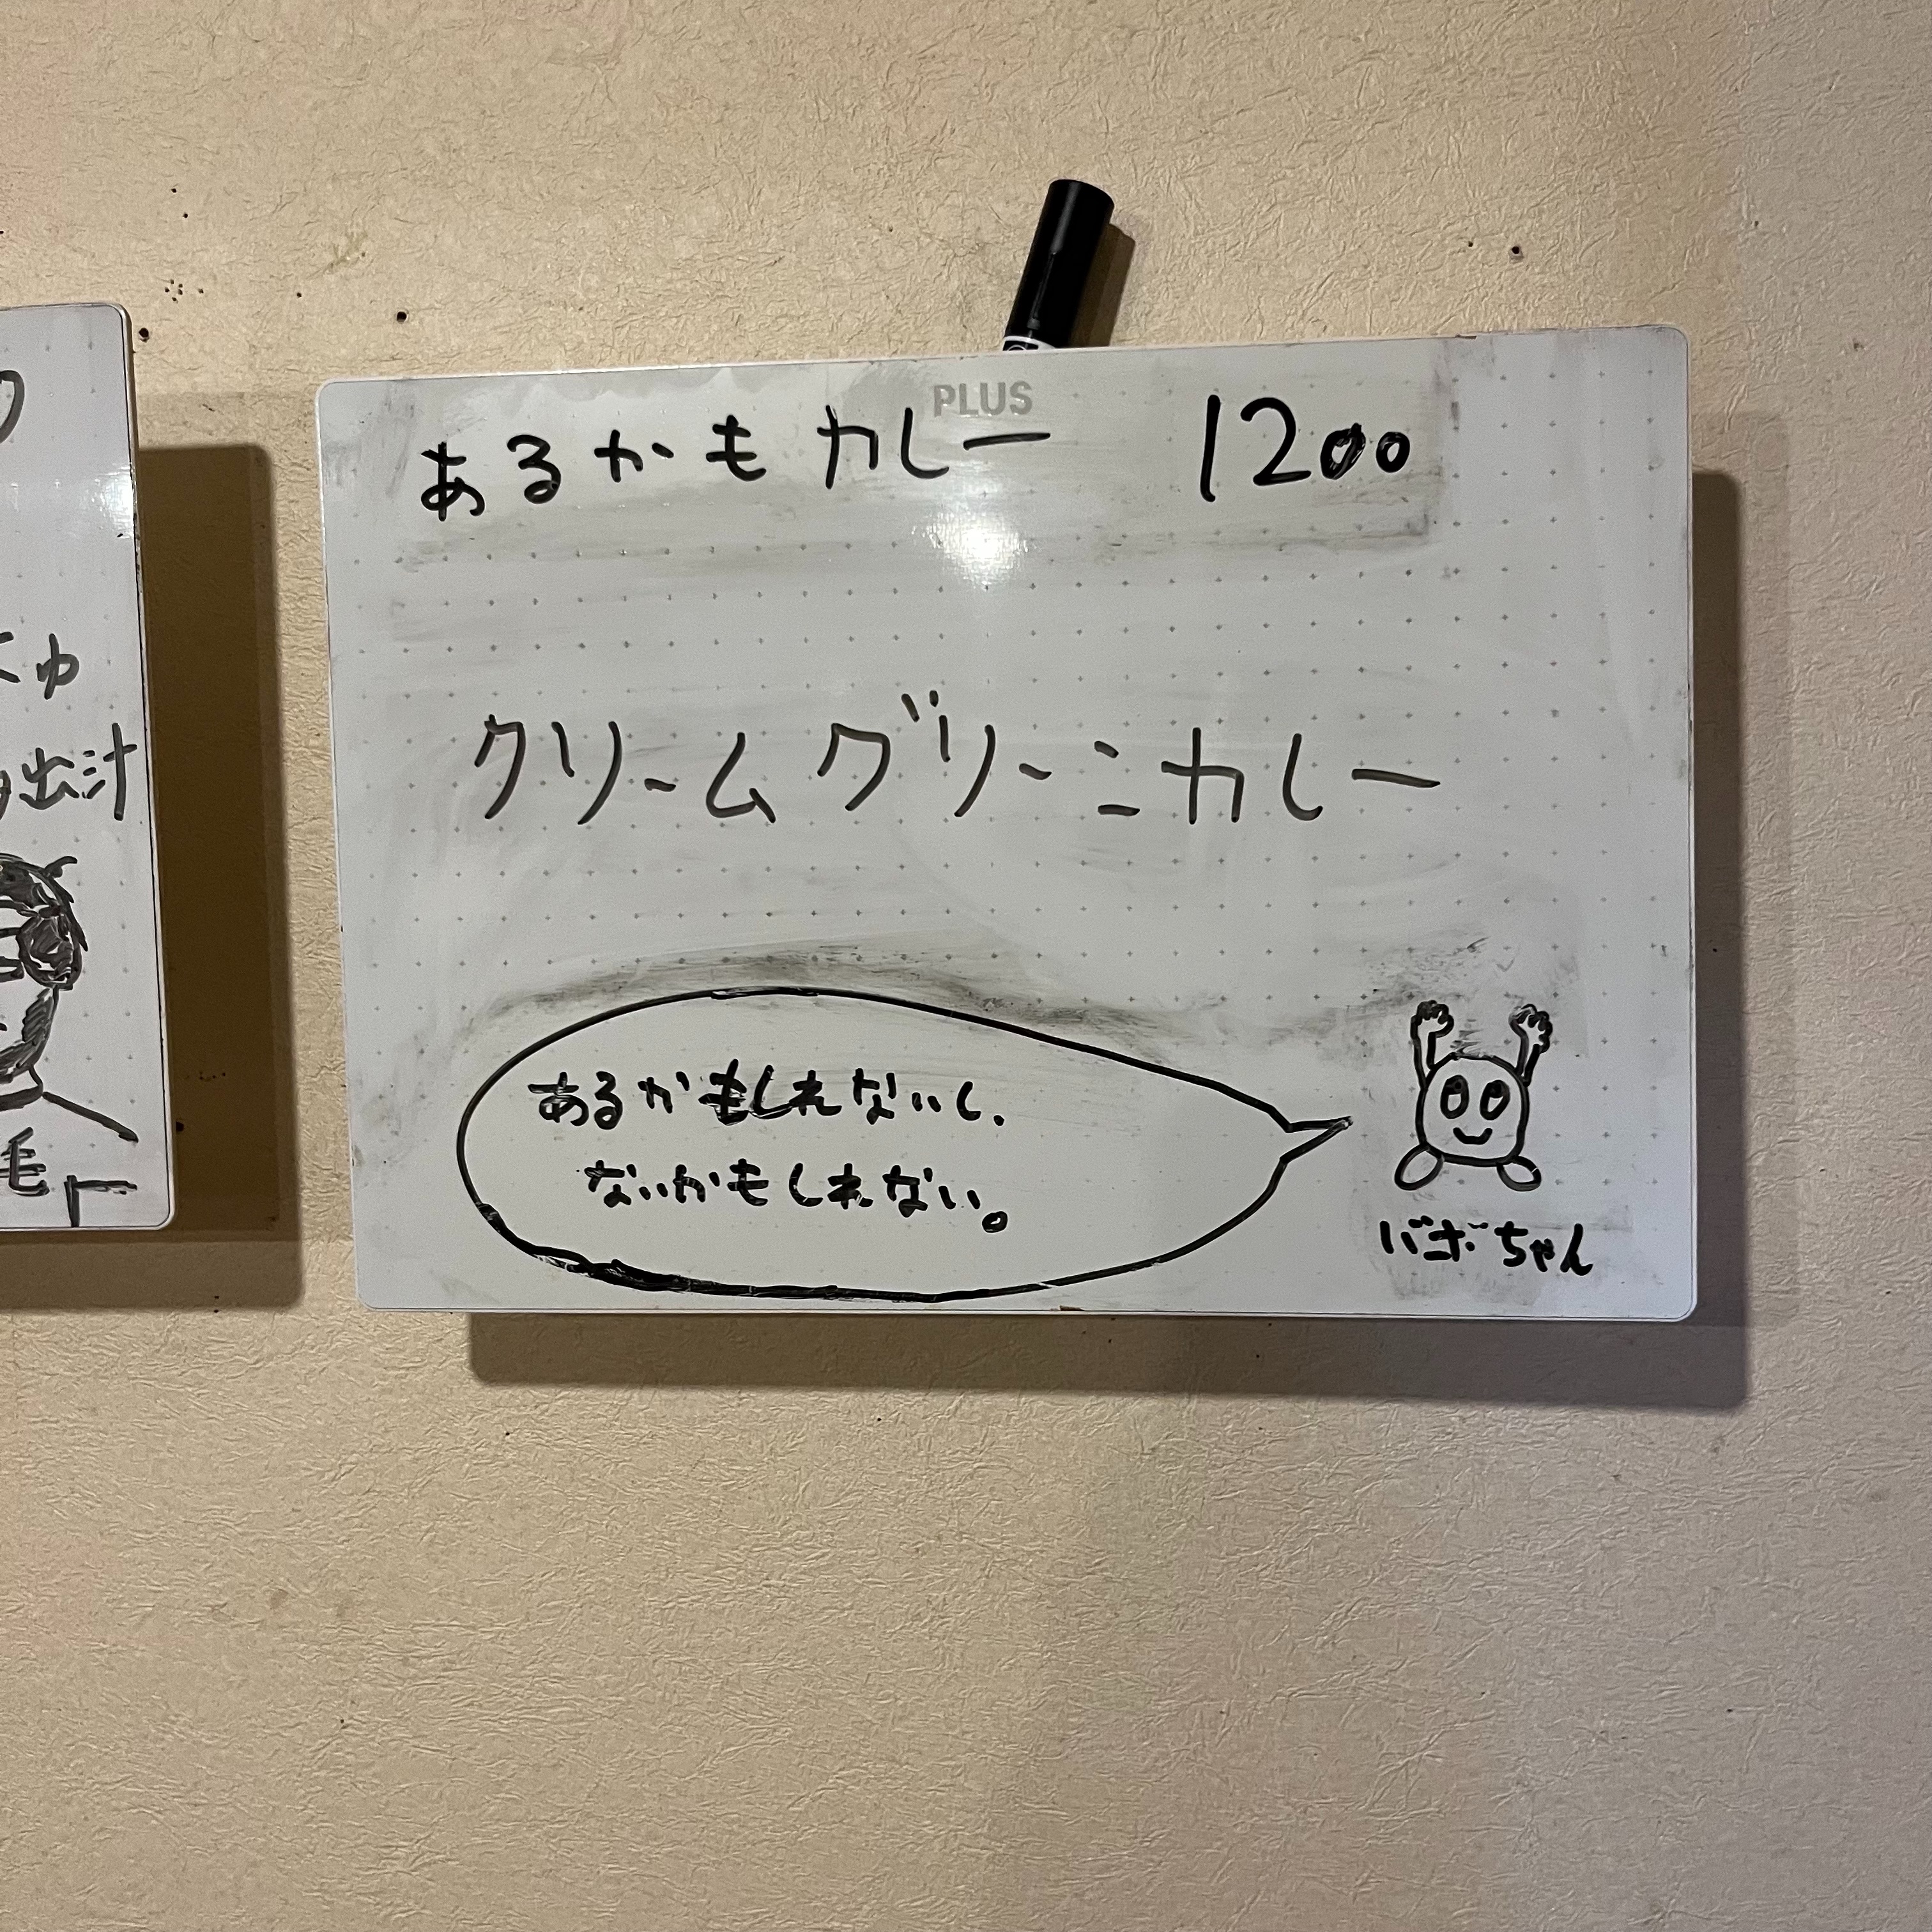 PLUS
あるかもカレー 1200
クリームグリーンカレー
あるかもしれないし、
ないかもしれない。
バボちゃん
出汁
毛